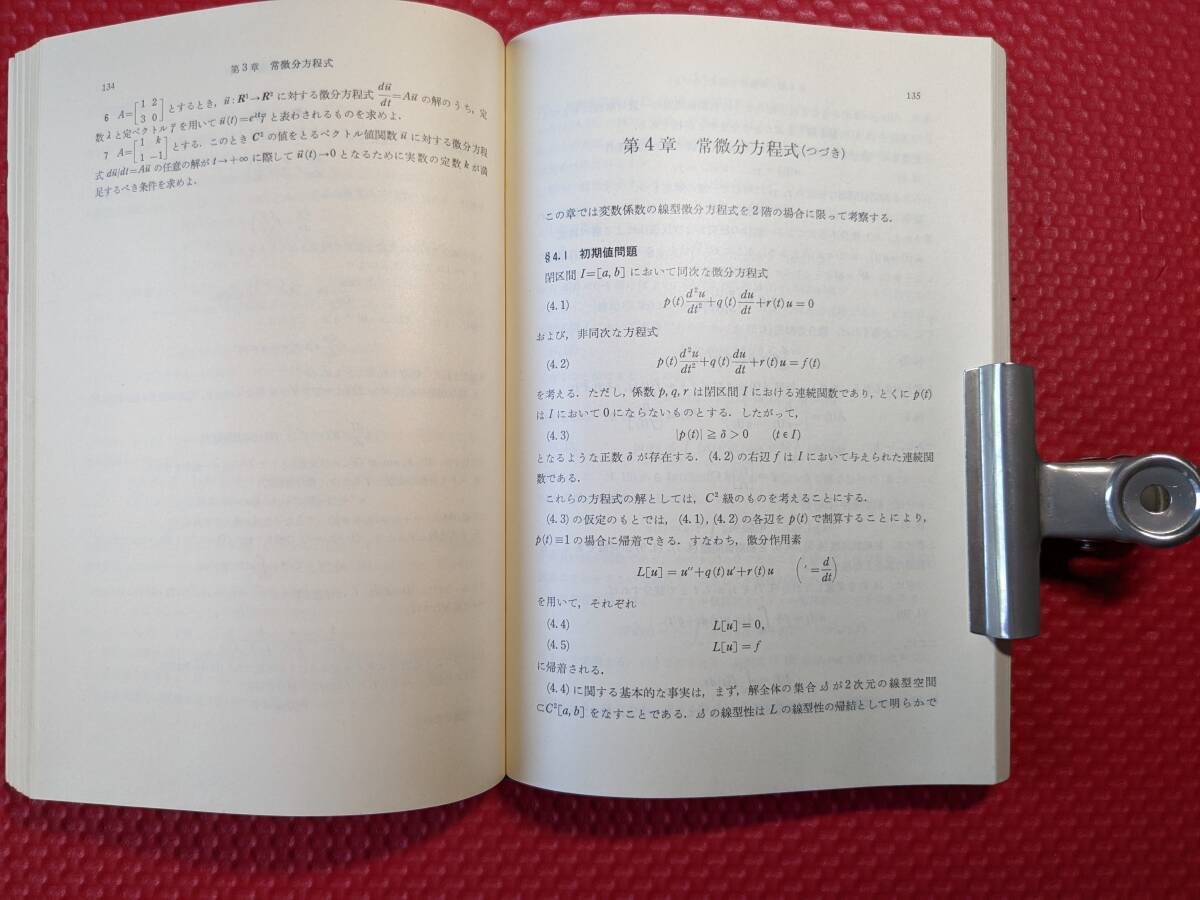 134
第3章 常微分方程式
6 A=[1 2 / 3 0] とするとき, u⃗: R¹→R² に対する微分方程式 du⃗/dt=Au⃗ の解のうち, 定
数 λ と定ベクトル γ⃗ を用いて u⃗(t)=e^{λt}γ⃗ と表わされるものを求めよ.
7 A=[1 k / 1 −1] とする. このとき C² の値をとるベクトル値関数 u⃗ に対する微分方程
式 du⃗/dt=Au⃗ の任意の解が t→+∞ に際して u⃗(t)→0 となるために実数の定数 k が満
足するべき条件を求めよ.
135
第4章 常微分方程式(つづき)
この章では変数係数の線型微分方程式を2階の場合に限って考察する.
§4.1 初期値問題
閉区間 I=[a, b] において同次な微分方程式
(4.1) p(t)d²u/dt²+q(t)du/dt+r(t)u=0
および, 非同次な方程式
(4.2) p(t)d²u/dt²+q(t)du/dt+r(t)u=f(t)
を考える. ただし, 係数 p, q, r は閉区間 I における連続関数であり, とくに p(t)
は I において 0 にならないものとする. したがって,
(4.3) |p(t)|≧δ>0 (t∈I)
となるような正数 δ が存在する. (4.2) の右辺 f は I において与えられた連続関
数である.
これらの方程式の解としては, C² 級のものを考えることにする.
(4.3) の仮定のもとでは, (4.1), (4.2) の各辺を p(t) で割算することにより,
p(t)≡1 の場合に帰着できる. すなわち, 微分作用素
L[u]=u''+q(t)u'+r(t)u (′=d/dt)
を用いて, それぞれ
(4.4) L[u]=0,
(4.5) L[u]=f
に帰着される.
(4.4) に関する基本的な事実は, まず, 解全体の集合 𝒮 が2次元の線型空間
⊂C²[a, b] をなすことである. 𝒮 の線型性は L の線型性の帰結として明らかで